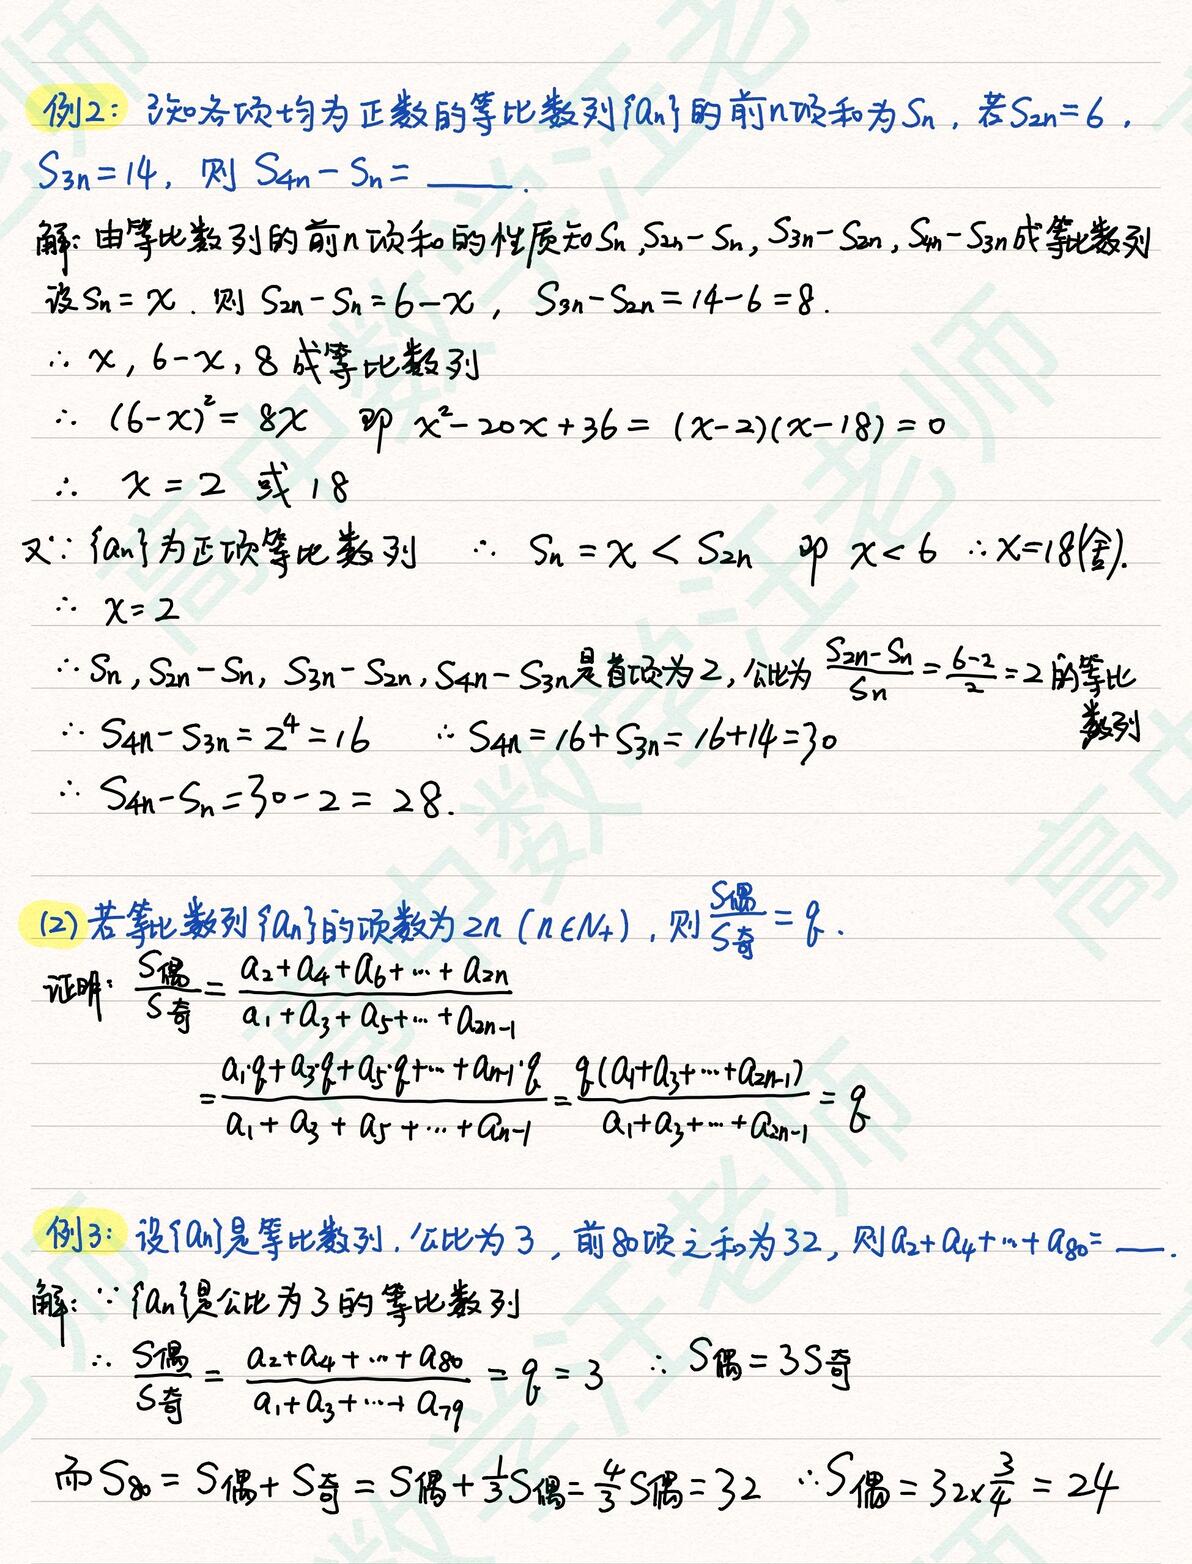 例2: 已知各项均为正数的等比数列{an}的前n项和为Sn, 若S2n=6,
S3n=14, 则 S4n-Sn= ____.
解: 由等比数列的前n项和的性质知Sn,S2n-Sn,S3n-S2n,S4n-S3n成等比数列
设Sn=x. 则 S2n-Sn=6-x, S3n-S2n=14-6=8.
∴ x, 6-x, 8 成等比数列
∴ (6-x)²=8x 即 x²-20x+36=(x-2)(x-18)=0
∴ x=2 或 18
又∵{an}为正项等比数列 ∴ Sn=x<S2n 即 x<6 ∴x=18(舍).
∴ x=2
∴Sn,S2n-Sn, S3n-S2n,S4n-S3n是首项为2,公比为 (S2n-Sn)/Sn=(6-2)/2=2 的等比
数列
∴ S4n-S3n=2⁴=16 ∴S4n=16+S3n=16+14=30
∴ S4n-Sn=30-2=28.
(2)若等比数列{an}的项数为2n (n∈N+), 则 S偶/S奇=q.
证明: S偶/S奇=(a2+a4+a6+…+a2n)/(a1+a3+a5+…+a2n-1)
=(a1·q+a3·q+a5·q+…+an-1·q)/(a1+a3+a5+…+an-1)=q(a1+a3+…+a2n-1)/(a1+a3+…+a2n-1)=q
例3: 设{an}是等比数列, 公比为3, 前80项之和为32, 则a2+a4+…+a80=____.
解: ∵{an}是公比为3的等比数列
∴ S偶/S奇=(a2+a4+…+a80)/(a1+a3+…+a79)=q=3 ∴ S偶=3S奇
而S80=S偶+S奇=S偶+1/3S偶=4/3S偶=32 ∴S偶=32×3/4=24
高中数学汪老师